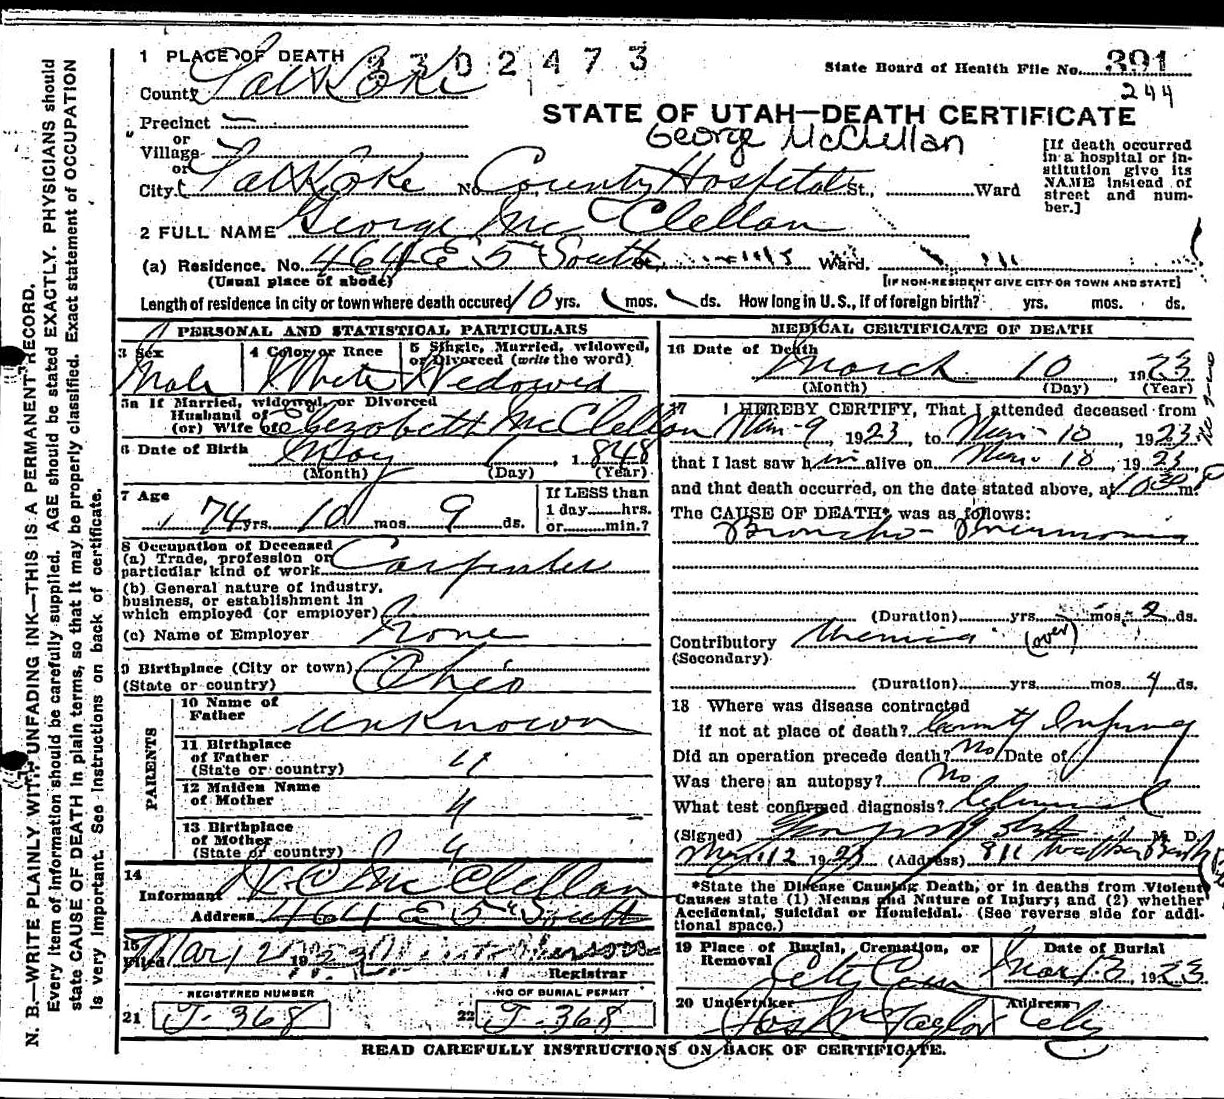 1 PLACE OF DEATH 2302473
State Board of Health File No. 391
244
County Salt Lake
STATE OF UTAH—DEATH CERTIFICATE
George McClellan
Precinct
or
Village
or
City Salt Lake No. County Hospital St., Ward
[If death occurred in a hospital or institution give its NAME instead of street and number.]
2 FULL NAME George McClellan
(a) Residence. No. 464 E 5" South Ward.
(Usual place of abode) [IF NON-RESIDENT GIVE CITY OR TOWN AND STATE]
Length of residence in city or town where death occured 10 yrs. mos. ds. How long in U. S., if of foreign birth? yrs. mos. ds.
PERSONAL AND STATISTICAL PARTICULARS
3 Sex Male
4 Color or Race White
5 Single, Married, widowed, or Divorced (write the word) Widowed
5a If Married, widowed, or Divorced
Husband of
(or) Wife of Elezobeth McClellan
6 Date of Birth May 1, 1848
(Month) (Day) (Year)
7 Age 74 yrs. 10 mos. 9 ds.
If LESS than
1 day......hrs.
or......min.?
8 Occupation of Deceased
(a) Trade, profession or
particular kind of work Carpenter
(b) General nature of industry,
business, or establishment in
which employed (or employer)
(c) Name of Employer None
9 Birthplace (City or town)
(State or country) Ohio
PARENTS
10 Name of
Father Unknown
11 Birthplace
of Father
(State or country) "
12 Maiden Name
of Mother "
13 Birthplace
of Mother
(State or country) "
14
Informant McClellan
Address 464 E 5" South
15
Filed Mar 12 1923
Registrar
REGISTERED NUMBER
21 J-368
NO OF BURIAL PERMIT
22 J-368
MEDICAL CERTIFICATE OF DEATH
16 Date of Death March 10, 1923
(Month) (Day) (Year)
17 I HEREBY CERTIFY, That I attended deceased from
Mar-9, 1923, to Mar-10, 1923,
that I last saw him alive on Mar-10, 1923,
and that death occurred, on the date stated above, at 1030 P m.
The CAUSE OF DEATH* was as follows:
Broncho-Pneumonia
(Duration) yrs. mos. 2 ds.
Contributory Uremia (over)
(Secondary)
(Duration) yrs. mos. 4 ds.
18 Where was disease contracted
if not at place of death? County Infirmary
Did an operation precede death? No Date of
Was there an autopsy? No
What test confirmed diagnosis? Clinical
(Signed) M. D.
Mar 12 1923 (Address) 811 Walker Bank
*State the Disease Causing Death, or in deaths from Violent
Causes state (1) Means and Nature of Injury; and (2) whether
Accidental, Suicidal or Homicidal. (See reverse side for additional space.)
19 Place of Burial, Cremation, or
Removal City Cem
Date of Burial
Mar 13, 1923
20 Undertaker Jos Wm Taylor
Address City
READ CAREFULLY INSTRUCTIONS ON BACK OF CERTIFICATE.
N. B.—WRITE PLAINLY WITH UNFADING INK—THIS IS A PERMANENT RECORD.
Every item of information should be carefully supplied. AGE should be stated EXACTLY. PHYSICIANS should
state CAUSE OF DEATH in plain terms, so that it may be properly classified. Exact statement of OCCUPATION
is very important. See Instructions on back of certificate.